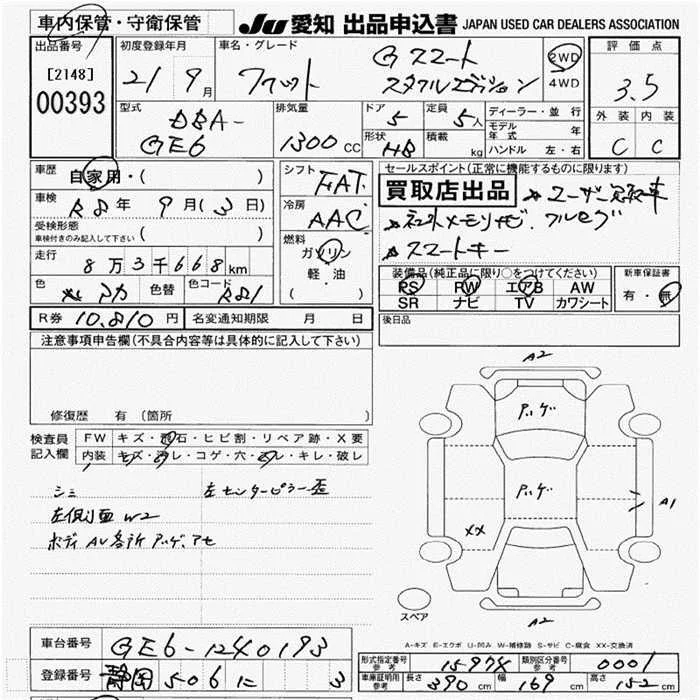 車内保管・守衛保管
JU 愛知 出品申込書 JAPAN USED CAR DEALERS ASSOCIATION
出品番号
[2148]
00393
初度登録年月
21 9月
車名・グレード
フィット
Gスマート
スタイルエディション
2WD
4WD
評価点
3.5
外装 内装
C C
型式
DBA-
GE6
排気量
1300 CC
ドア 5
形状 HB
定員 5人
積載 kg
ディーラー・並行
モデル年式 年
ハンドル 左・右
車歴 自家用・( )
車検 R8年 9月(3日)
受検形態
車検付きのみ記入して下さい ( )
走行 8万3千668km
色 アカ 色替 色コード R81
シフト FAT
冷房 AAC
燃料
ガソリン
軽・油
( )
セールスポイント(正常に機能するものに限ります)
買取店出品 ☆ユーザー買取車
☆ネットメモリナビ.フルセグ
☆スマートキー
装備品(純正品に限り○をつけてください)
PS PW エアB AW
SR ナビ TV カワシート
新車保証書
有・無
R券 10,810円 名変通知期限 月 日
後日品
注意事項申告欄(不具合内容等は具体的に記入して下さい)
修復歴 有(箇所
検査員
記入欄
FW キズ・飛石・ヒビ割・リペア跡・X要
内装 キズ・汚レ・コゲ・穴・スレ・キレ・破レ
シミ 左センターピラー歪
左側面 W2
ボディ AU各所 アバゲ.アセ
A2
アバゲ
アバゲ
A1
XX
A2
スペア
A-キズ E-エクボ U-凹み W-補修跡 S-サビ C-腐食 XX-交換済
車台番号 GE6-1240193
登録番号 静岡 506 に 3
型式指定番号 参考 15974 類別区分番号 参考 0001
車庫証明用 参考 長さ 390cm 幅 169cm 高さ 152cm